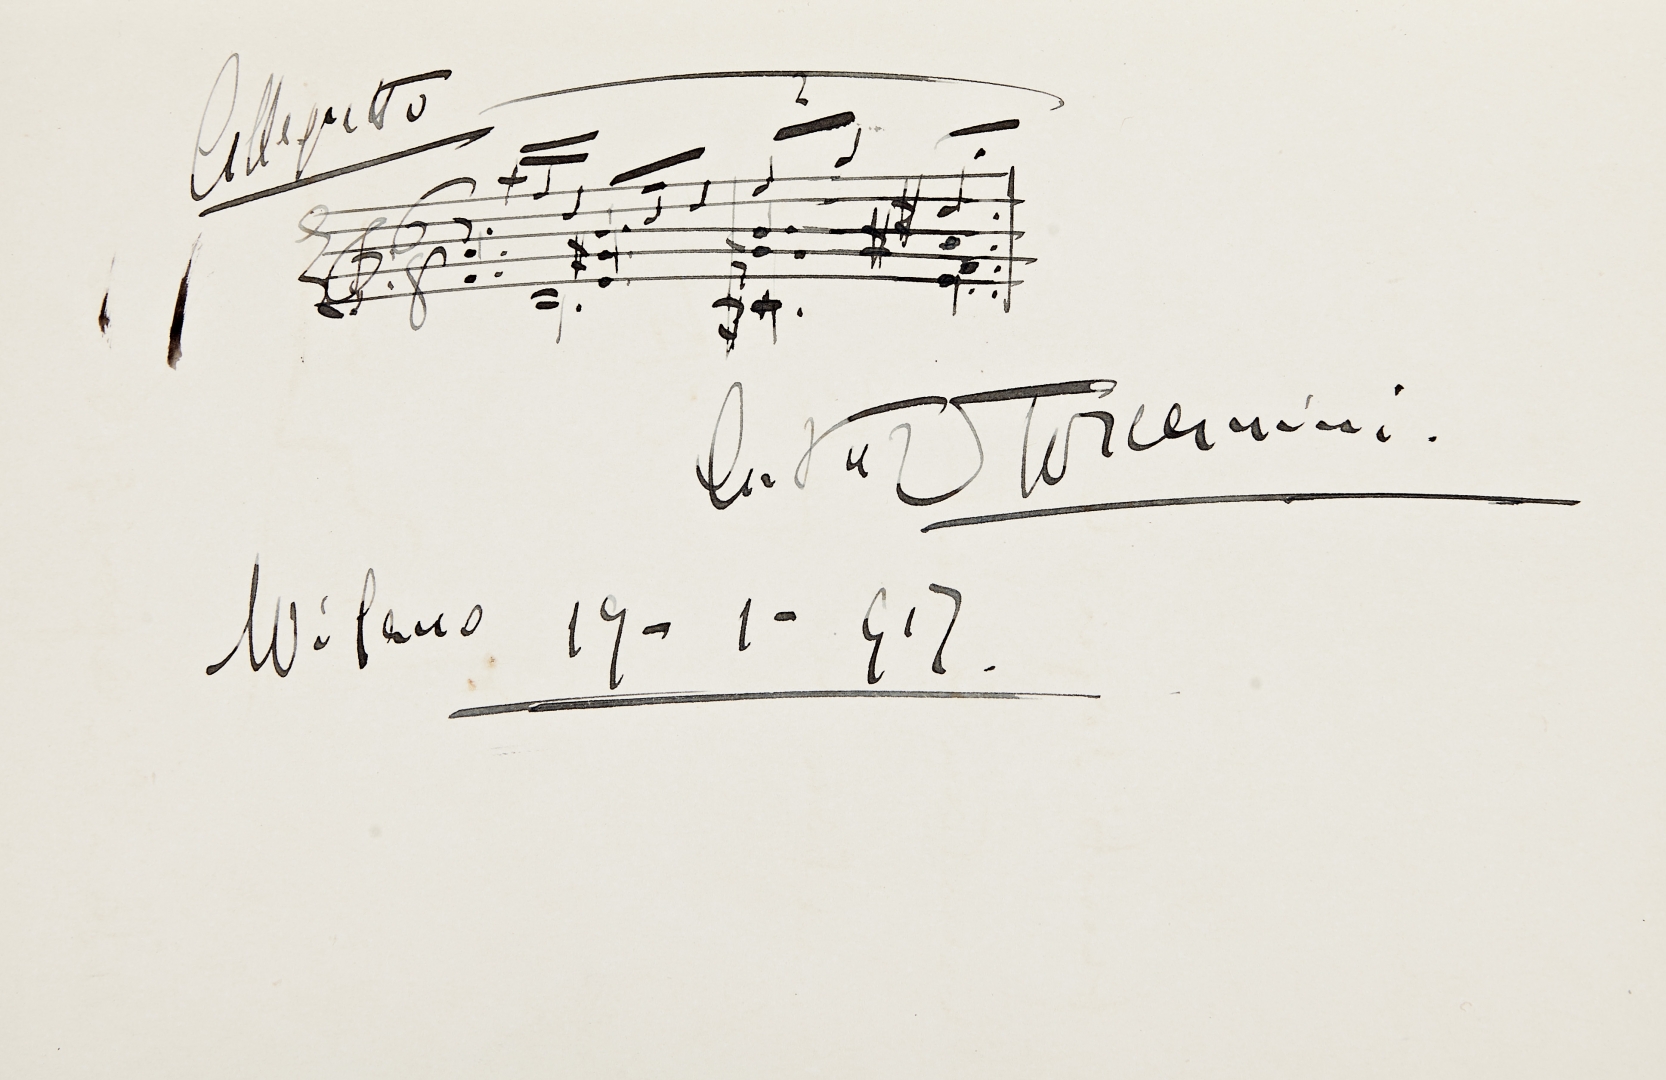 Allegretto
Arturo Toscanini.
Milano 19 - 1 - 917.